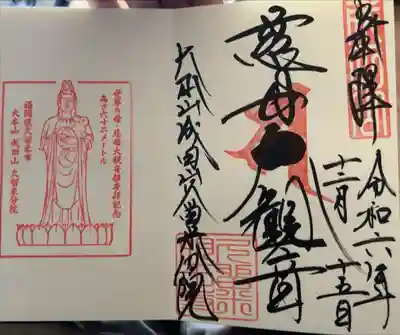 奉拝
令和六年
十二月
十五日
慈母大觀音
大本山成田山久留米分院
世界の母・慈母大観音参拝記念
高さ六十二メートル
福岡県久留米市
大本山 成田山 久留米分院